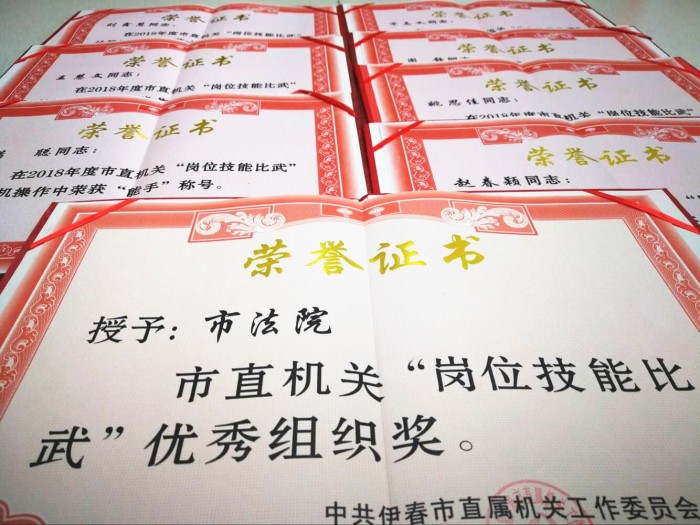 荣誉证书
同志:
在2018年度市直机关“岗位技能比武”
荣誉证书
王慧文同志:
在2018年度市直机关“岗位技能比武”
荣誉证书
聪同志:
在2018年度市直机关“岗位技能比武”
机操作中荣获“能手”称号。
荣誉证书
同志:
荣誉证书
荣誉证书
姚思佳同志:
在2018年度市直机关“岗位技能比武”
荣誉证书
赵春颖同志:
荣誉证书
授予:市法院
市直机关“岗位技能比
武”优秀组织奖。
中共伊春市直属机关工作委员会